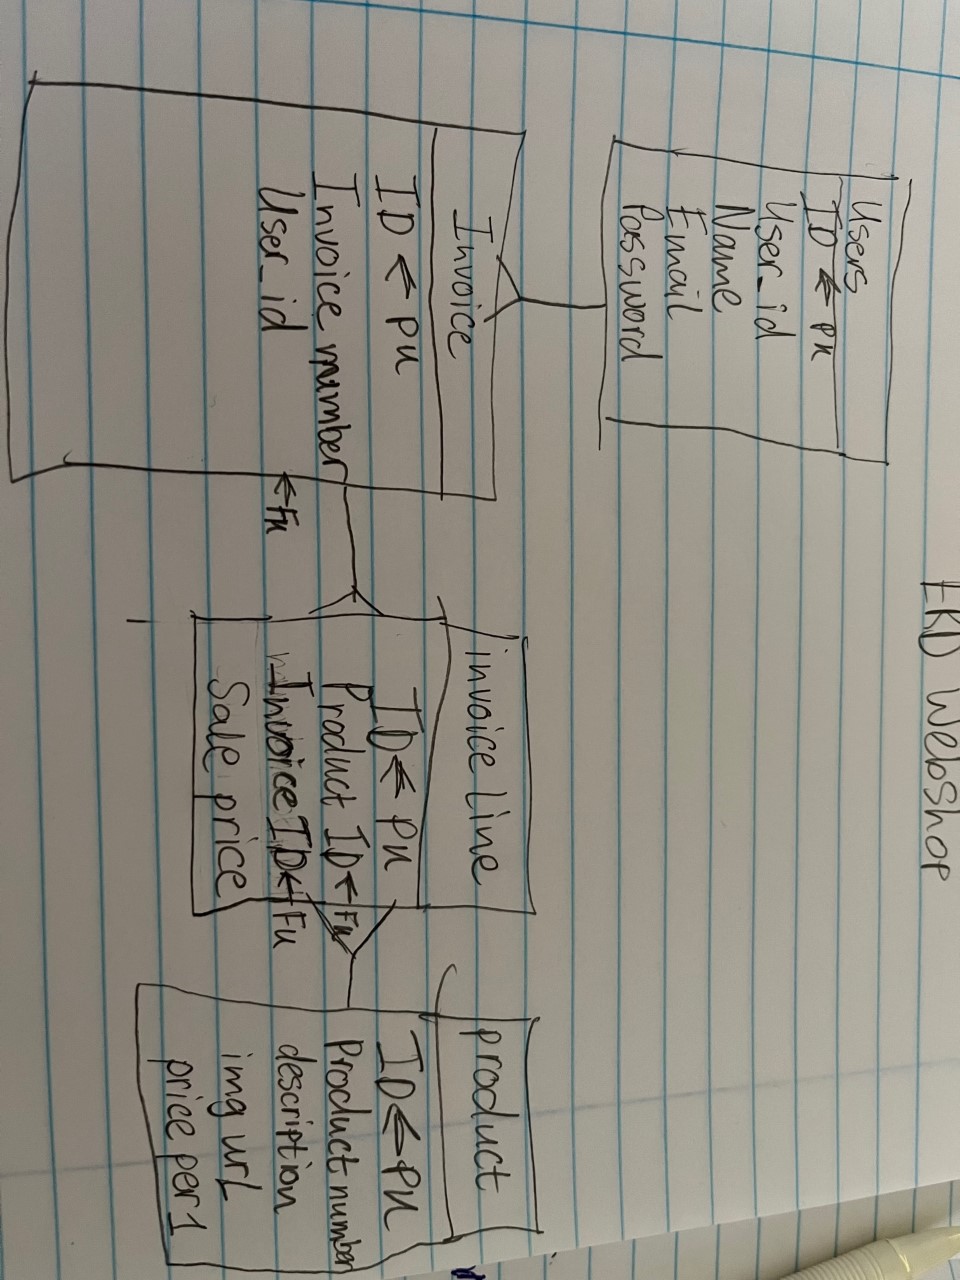 ERD Webshop
Users
ID ← PK
User_id
Name
Email
Password
Invoice
ID ← PK
Invoice number
User_id ← FK
invoice line
ID ← PK
Product ID ← FK
Invoice ID ← FK
Sale price
product
ID ← PK
Product number
description
img url
price per 1